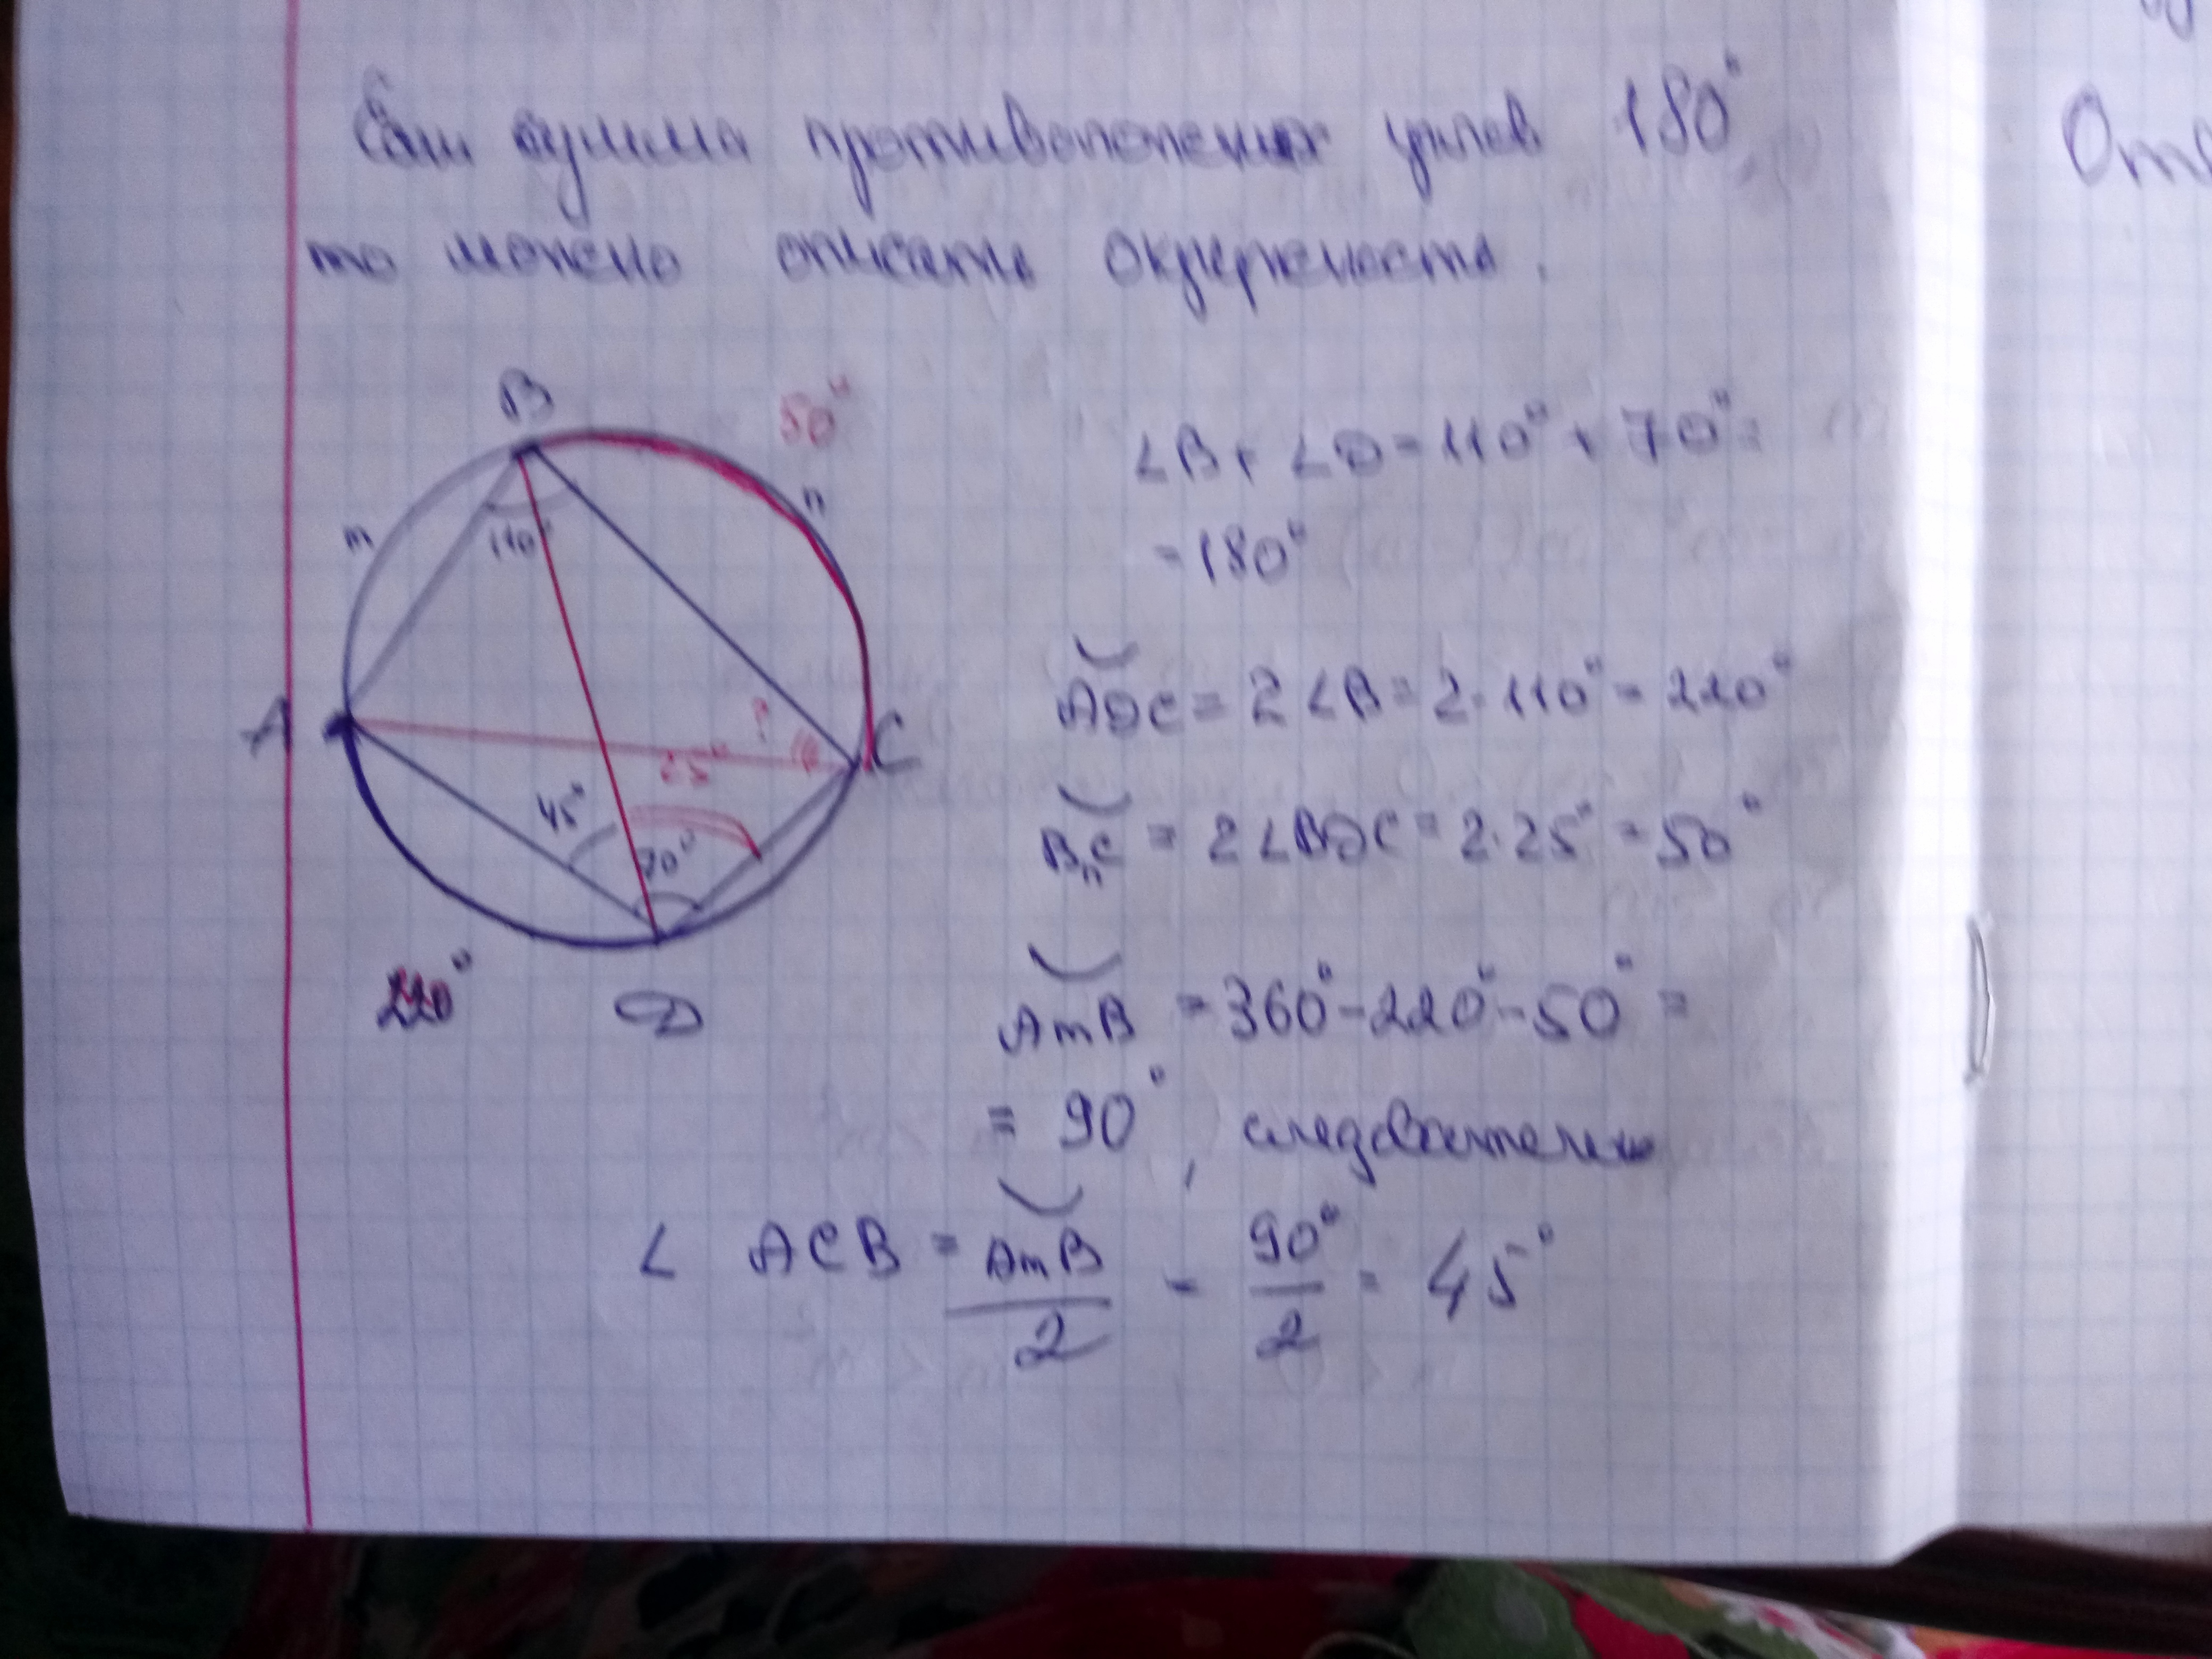 Если сумма противоположных углов 180°,
то можно описать окружность.
Отв
B
50°
m
n
110°
A
?
C
25°
45°
70°
220°
D
∠B + ∠D = 110° + 70° =
= 180°
ADC = 2∠B = 2·110° = 220°
BnC = 2∠BDC = 2·25° = 50°
AmB = 360° - 220° - 50° =
= 90°, следовательно
∠ ACB = AmB/2 = 90°/2 = 45°